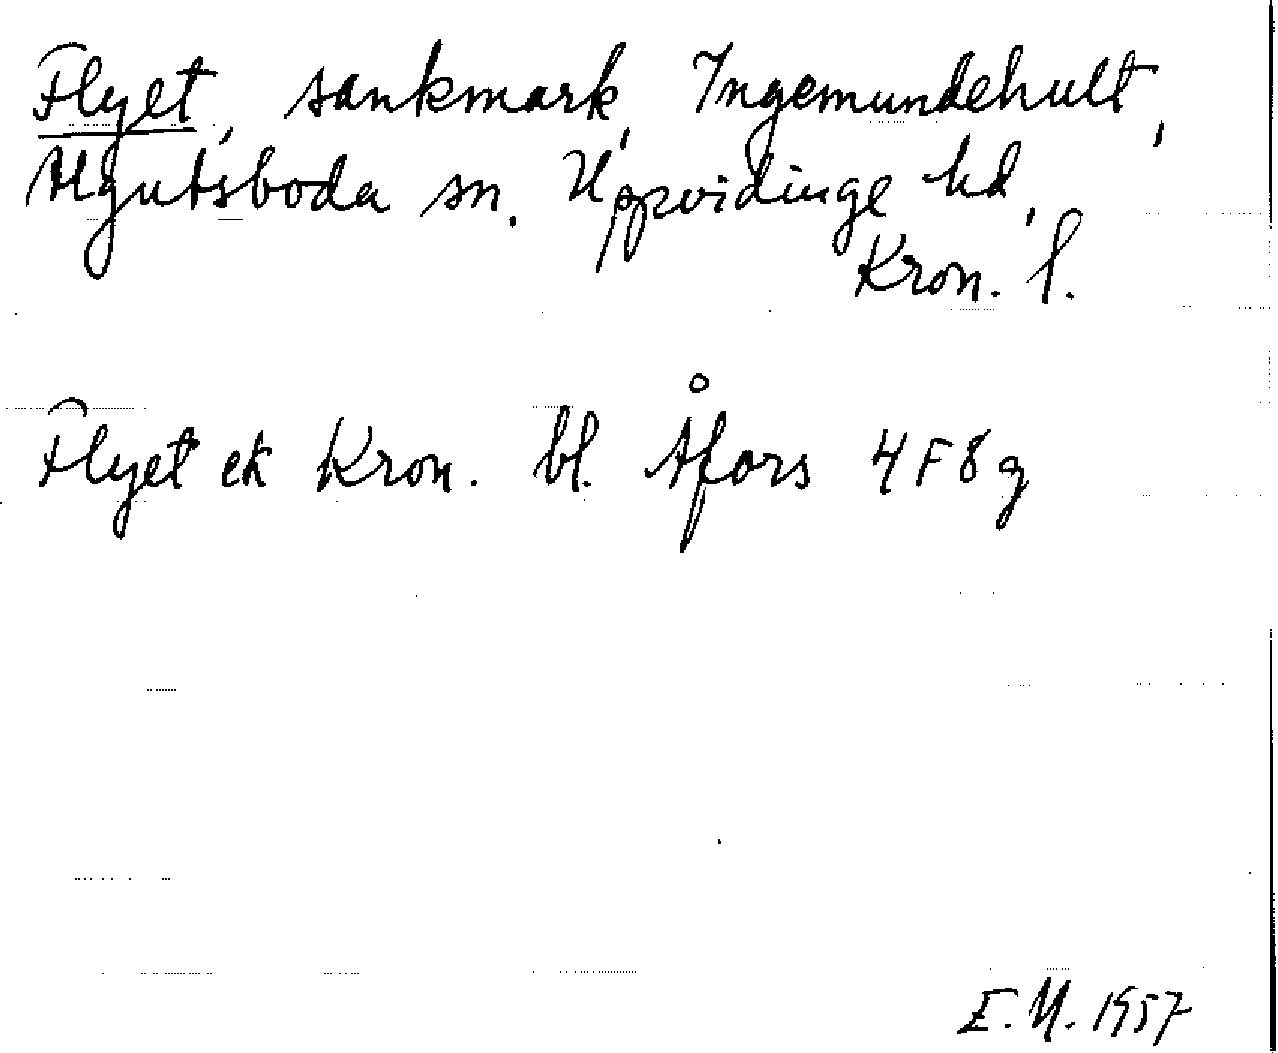 Flyet, sankmark, Ingemundehult,
Älgutsboda sn. Uppvidinge hd,
Kron. l.
Flyet ek Kron. bl. Åfors 4F8g
E. M. 1957